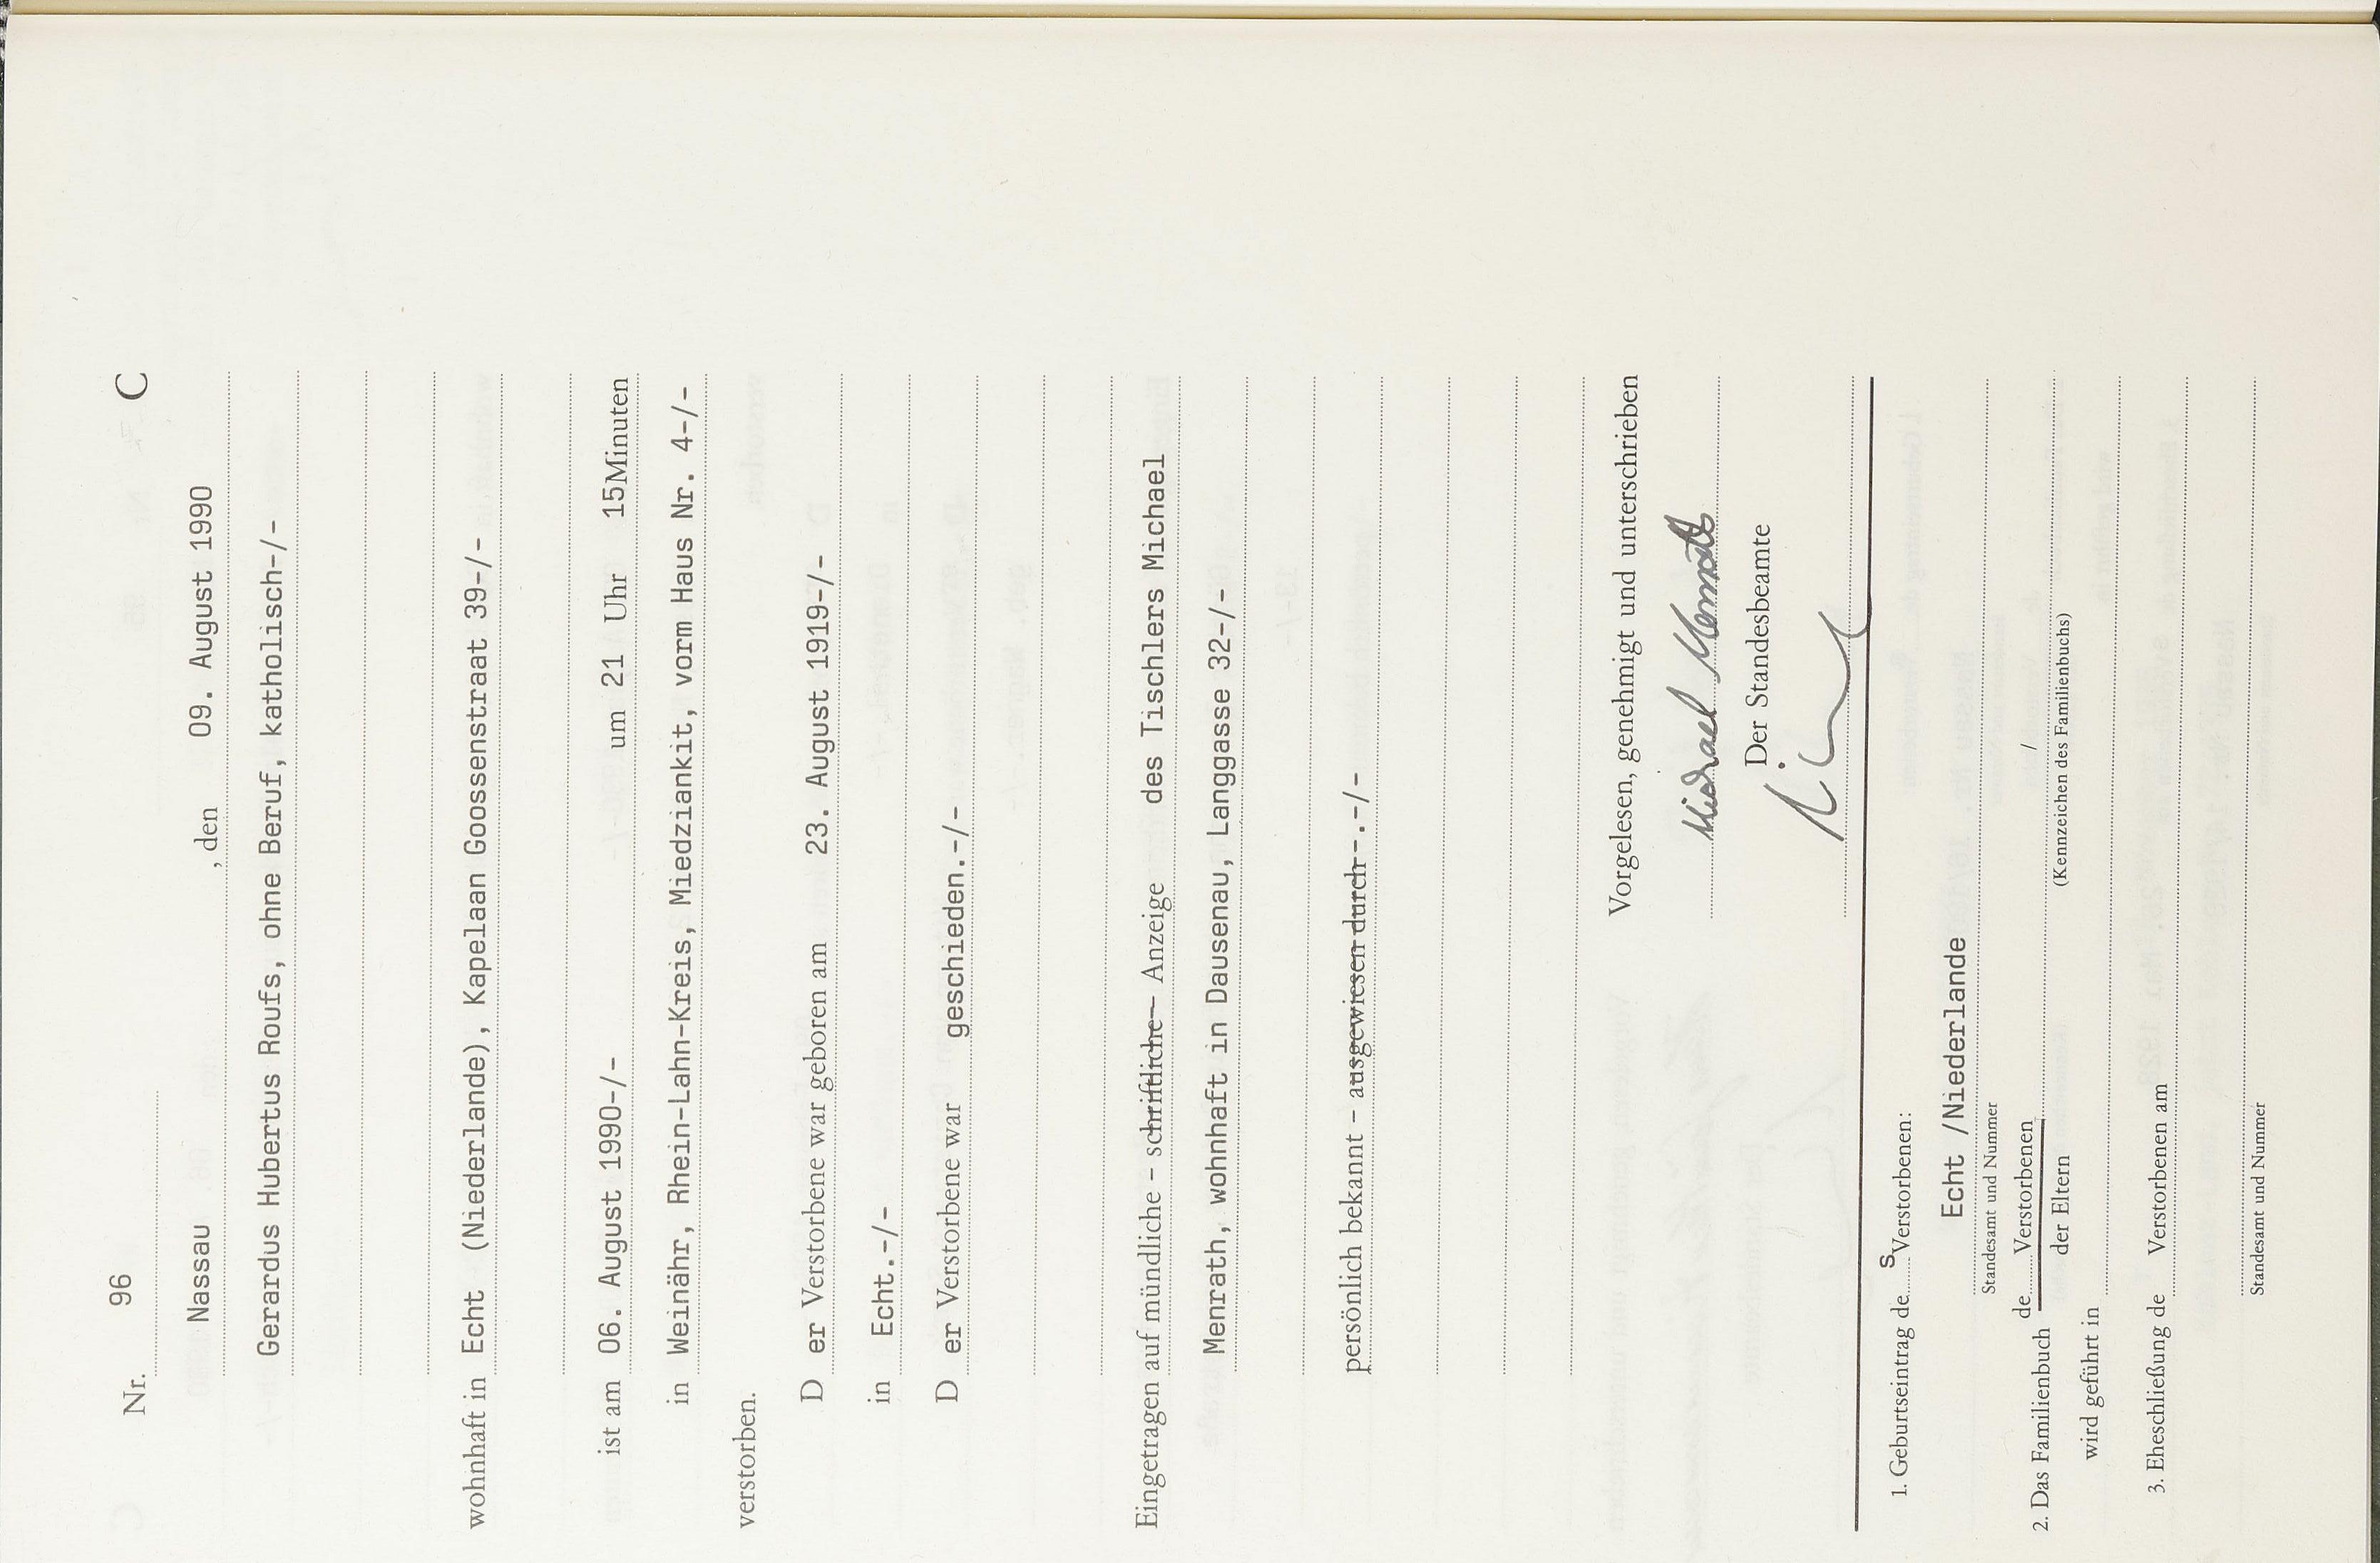 Nr. 96 C
Nassau , den 09. August 1990
Gerardus Hubertus Roufs, ohne Beruf, katholisch-/-
wohnhaft in Echt (Niederlande), Kapelaan Goossenstraat 39-/-
ist am 06. August 1990-/- um 21 Uhr 15Minuten
in Weinähr, Rhein-Lahn-Kreis, Miedziankit, vorm Haus Nr. 4-/-
verstorben.
D er Verstorbene war geboren am 23. August 1919-/-
in Echt.-/-
D er Verstorbene war geschieden.-/-
Eingetragen auf mündliche – schriftliche – Anzeige des Tischlers Michael
Menrath, wohnhaft in Dausenau, Langgasse 32-/-
persönlich bekannt – ausgewiesen durch -.-/-
Vorgelesen, genehmigt und unterschrieben
Michael Menrath
Der Standesbeamte
1. Geburtseintrag de s Verstorbenen:
Echt /Niederlande
Standesamt und Nummer
2. Das Familienbuch de Verstorbenen /
der Eltern (Kennzeichen des Familienbuchs)
wird geführt in
3. Eheschließung de Verstorbenen am
Standesamt und Nummer